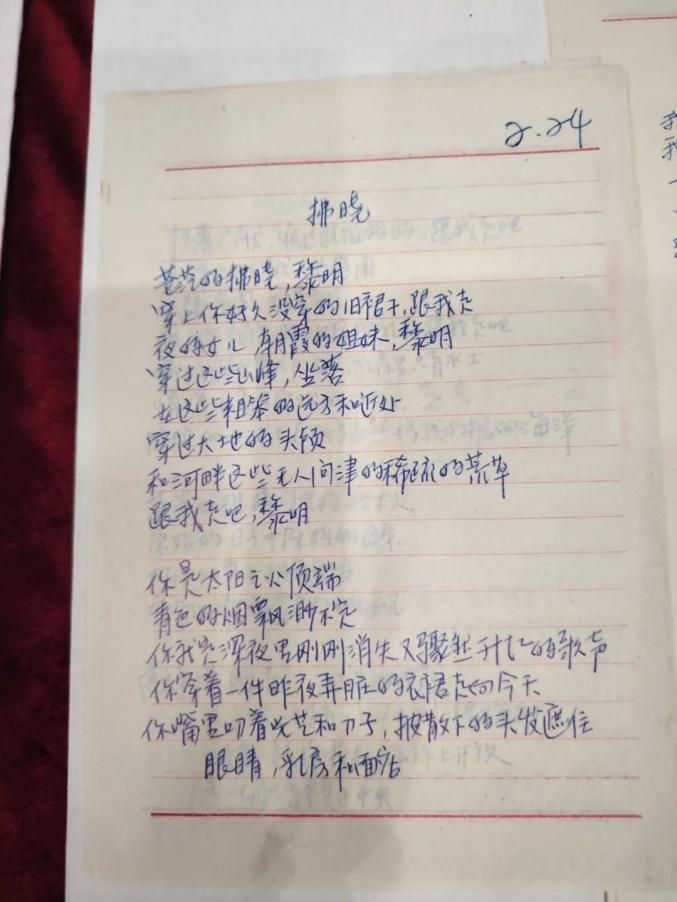 2.24
拂晓
苍茫的拂晓,黎明
穿上你好久没穿的旧裙子,跟我走
夜的女儿 朝霞的姐妹,黎明
穿过这些山峰,坐落
在这些粗笨的远方和近处
穿过大地的头颅
和河畔这些无人问津的稀疏的荒草
跟我走吧,黎明
你是太阳之火顶端
青色的烟飘渺不定
你就是深夜里刚刚消失又骤然升起的歌声
你穿着一件昨夜弄脏的衣裙走向今天
你嘴里叼着光芒和刀子,披散下的头发遮住
眼睛,乳房和面